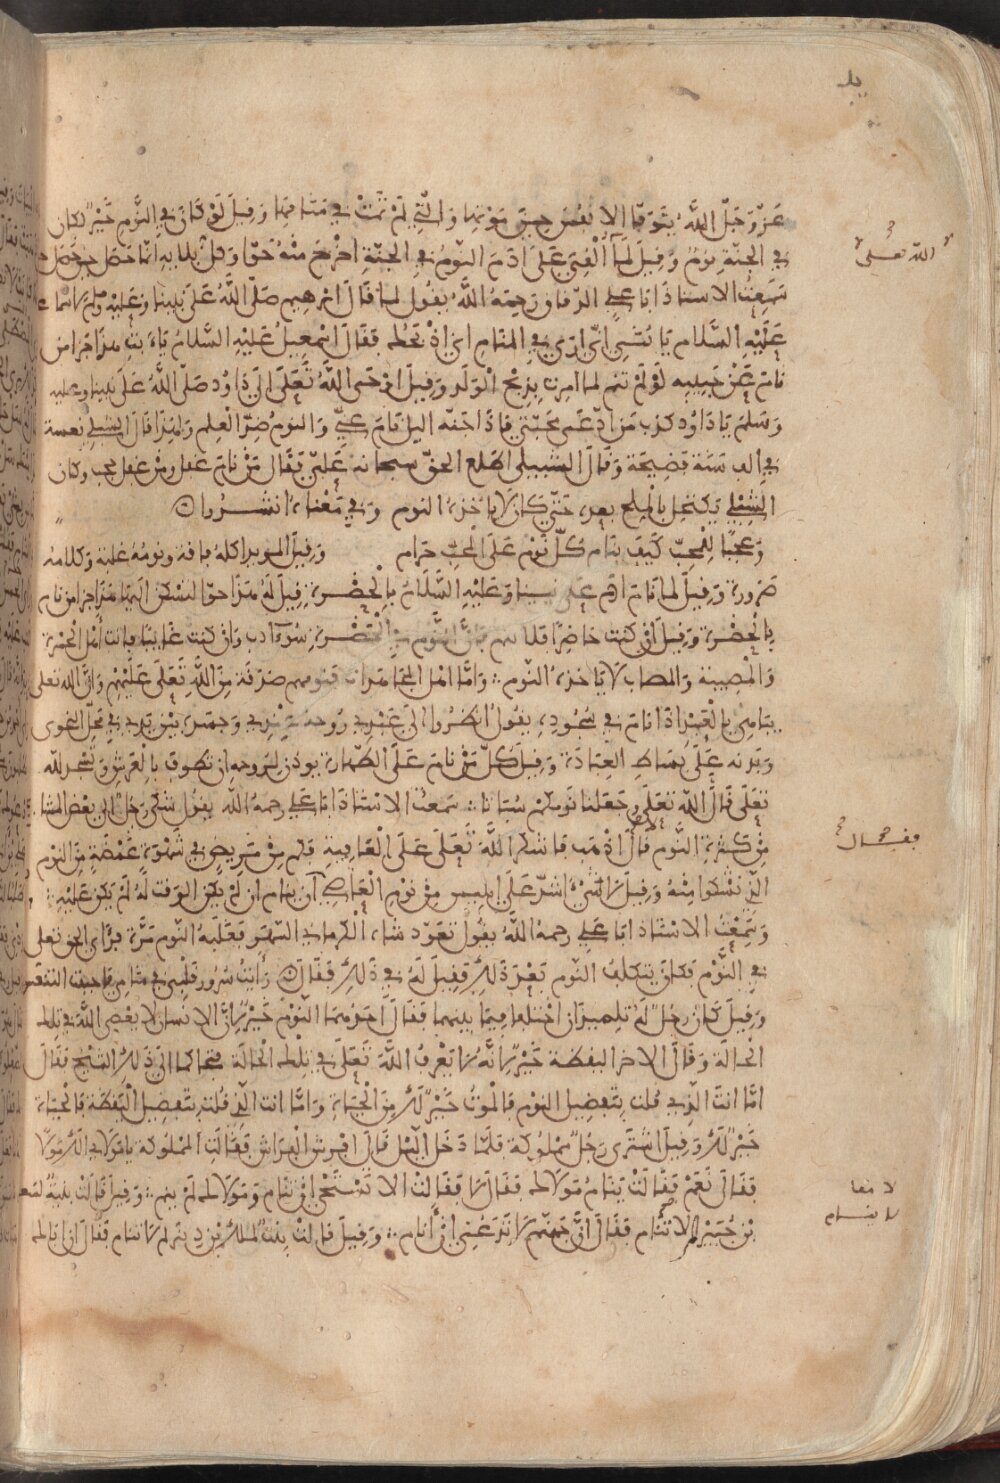 عَزَّ وَجَلَّ اللَّهُ يَتَوَفَّى الانفُسَ حِينَ مَوْتِهَا وَالَّتِي لَمْ تَمُتْ فِي مَنَامِهَا وَقِيلَ لَوْ كَانَ فِي النَّوْمِ خَيْرٌ لكان
في الجنَّةِ نومٌ وَقِيلَ لَمَّا أُلْقِيَ عَلَى ادَمَ النَّوْمُ فِي الجَنَّةِ اخرج منْهُ حَوَّا وَكل بلا به انَّما حَصَل حين حَصَل
سَمِعْت الاستاذَ ابَا علي الدقاق رَحِمَهُ اللَّهُ يقُول لما قَالَ ابرهيم صَلَّى اللَّهُ عَلَى نبينا وَعَلَيْهِ وسلم لاسماعيل
عَلَيْهِ السَّلام يَا بُنَيّ انّي ارَى في المنَامِ اني اذْبَحُك فقَالَ اسْمعِيلُ عَلَيْهِ السَّلامُ يَا ابَتِ هذا جَزا من
نامَ عَنْ حَبِيبِهِ لوْ لَمْ تنم لما امرت بِذبْح الْوَلَد وَقِيلَ اوْحَى اللَّهُ تَعَلَى الَى دَاوُد صَلَّى اللَّهُ عَلَى نبينا وعليه
وَسَلم يَا دَاوُد كذب مَنِ ادَّعَى مَحَبَّتِي فاذَا جنّه اليل نَامَ عَنّي وَالنومُ ضِدّ الْعِلم وَلهَذَا قَالَ الشبلي نعسة
في الف سَنَة فضِيحَة وَقَالَ الشبلي اطلع الحقّ سبحانه عَلَيَّ فقَال مَنْ نَامَ غَفل ومَنْ غفل حجب وكان
الشِّبْلي يَكتحِل بالملح بعده حَتَّى كَانَ لَا ياخذه النوم وَفي مَعْناه انشدوا
وَعَجَبًا لِلْمُحِبِّ كَيْفَ يَنَام كُلُّ نَوْمٍ عَلَى المحِبِّ حَرَام وَقِيلَ المريد اكله فاقة ونومُهُ غلبة وَكلامه
ضرورة وَقِيلَ لما نَامَ ادَم عَلَى نبينا وَعَلَيْهِ السَّلَامُ بِالْحَضْرَة قِيلَ لَهُ هَذَا حوا لتسْكن اليها هَذَا جزا من نام
بالحضْرة وَقِيلَ ان كنت حَاضِرًا فلا تنم فَانَّ النَّوْم في الْحَضْرَة سُوء ادب وَان كنت غايبا فانت من أهْل الْحَسْرَة
وَالْمُصِيبة وَالمصاب لا يَاخذه النّوم وَامَّا اهْل المجَاهَدات فنومهم صَدقَة مِنَ اللَّهِ تَعَلى عَلَيْهِمْ وَانَّ اللَّه تعلى
يبَاهِي بِالْعَبْد اذا نَامَ في سُجُوده يقُولُ انظُرُوا الى عَبْدِي رُوحه عِنْدِي وَجسَده بيْن يدي فِي مَحَلّ النجوى
وَبدنه عَلَى بسَاطِ العِبَادَة وَقِيلَ كُلّ مَنْ نَامَ عَلَى الطَّهارة يوذن لِروحه ان تطوف بِالْعَرْشِ وَتسْجد لله
تَعَلَى قَالَ اللَّه تعَلى وَجَعَلنَا نَومَكم سُبَاتًا سَمعتُ الاسْتَاذَ ابَا علي رحمهُ اللَّه يقُول شكى رَجُل الى بعض المشا
مِنْ كَثرَة النَّوْم فَقَالَ اذْهَب فَاشْكر اللَّهَ تَعَلَى عَلَى الْعَافِيةِ فكم مِنْ مَرِيضٍ في شَهْوَة غَمْضَةٍ مِنَ النَّوْم
الَّذي تشكوا مِنْهُ وَقِيلَ لا شَيْء اشدّ عَلَى ابلِيس مِن نوم الْعَاصِي يقول مَتَى يَنتَبِه
وَسَمِعْت الاسْتَاذ ابَا علي رحمهُ اللَّه يقُول تعَوّد شاه الكرماني السّهر فَغَلَبَهُ النّوم مَرّة فرأى الحق تعلى
في النَّوْم فكانَ يتكلف النّوم بَعْدَ ذَلِكَ فقِيلَ لَهُ في ذَلِكَ فقَالَ رَأيْتُ سُرُورَ قَلْبِي في مَنَامِي فاحببت التنعّس
وَقِيلَ كَانَ رَجُل لَهُ تلميذان اختلفا فيمَا بينهما فقَالَ أحَدُهُمَا النّوْمُ خَيْرٌ لانَّ الانسَان لا يعْصِي اللَّهَ في تلك
الْحَالَة وَقَالَ الاخر اليقظة خَيْرٌ لانَّهُ يَعْرِفُ اللَّهَ تَعَلَى في تلك الْحَالَة فتحاكما الى ذَلِكَ الشَّيْخ فقَالَ
امَّا انتَ الّذِي قُلت بِتفضِيل النوْم فالموْتُ خَيْرٌ لَكَ مِنَ الْحَيَاة وَامَّا انت الّذي قُلت بتفضِيل الْيَقظة فالْحَيَاة
خَيْرٌ لَكَ وَقِيلَ اشْتَرَى رَجُل مَمْلُوكة فَلَمَّا دَخَل اللّيْل قَالَ افرش الفِرَاش فقَالَت المَمْلُوكة يَا مَوْلَاي أَلَكَ مَوْلًى
فقَالَ نَعَمْ فقَالَتْ يَنَامُ مَوْلَاك فقَالَ لَا فقَالَتْ الا تَسْتَحْيِ انْ تنَام وَمَوْلاك لم ينم وَقِيلَ قَالَتْ بنَيّةٌ لسَعيد
بْن جُبَيْر لم لا تَنَام فقَالَ انَّ جَهَنّم لَا تَدَعُنِي انْ أنَام وَقِيلَ قالت بنْتٌ لمالك بْن دينار لم لا تنام فقَالَ ان اباك
الله تعلى
فقال
لا تنام